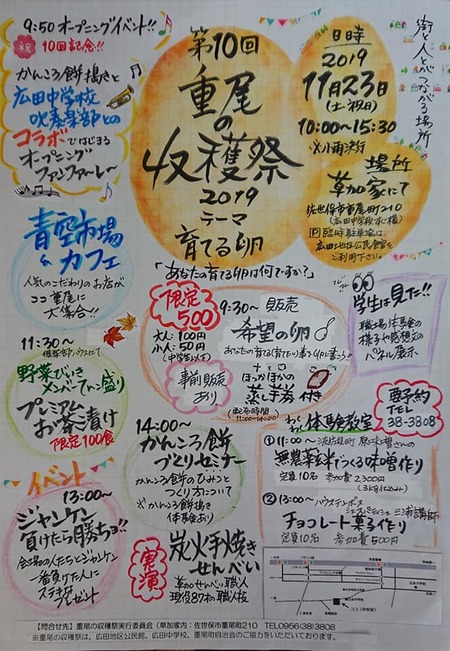 9:50 オープニングイベント!!
祝 10回記念!!
かんころ餅搗きと
広田中学校
吹奏楽部との
コラボではじまる
オープニング
ファンファーレ〜
第10回
重尾
の
収穫祭
2019
テーマ
育てる卵
「あなたの育てる卵は何ですか?」
日時
2019
11月23日
(土・祝日)
10:00〜15:30
※小雨決行
場所
草加家にて
佐世保市重尾町210
(広田中学校本に横)
P 臨時駐車場は、
広田地区公民館を
ご利用下さい。
街と人とがつながる場所
青空市場
& カフェ
人気のこだわりのお店が
ココ重尾に
大集合!!
限定
500
9:30〜 販売
大人:100円
小人:50円
(中学生以下)
希望の卵
あなたの育てる(育てたい)夢を卵に書こう!!
事前販売
あり
ほっかほかの
蒸し券 付き
(配布時間
11:00〜14:00)
学生は見た!!
職場体験の
様子や感想の
パネル展示
11:30〜
野菜びいき
メンバーてんこ盛り
プレミアム
お茶漬け
限定100食
14:00〜
かんころ餅
づくりセミナー
かんころ餅のひみつと
つくり方について
※かんころ餅搗き
体験あり
要予約
TEL
38-3808
わくわく体験教室
① 11:00〜
無農薬玄米でつくる味噌作り
定員10名 参加費2,300円
② 13:00〜 ハウステンボス
三浦講師
チョコレート菓子作り
定員10名 参加費500円
イベント
13:00〜
ジャンケン
負けたら勝ちョ!!
会場の人たちとジャンケン
一番負けた人に
ステキな
プレゼント
実演
炭火手焼き
せんべい
草加せんべい職人
現役87才の職人技
【問合せ先】重尾の収穫祭実行委員会(草加家内:佐世保市重尾町210 TEL0956-38-3808
※重尾の収穫祭は、広田地区公民館、広田中学校、重尾町自治会のご協力をいただいております。